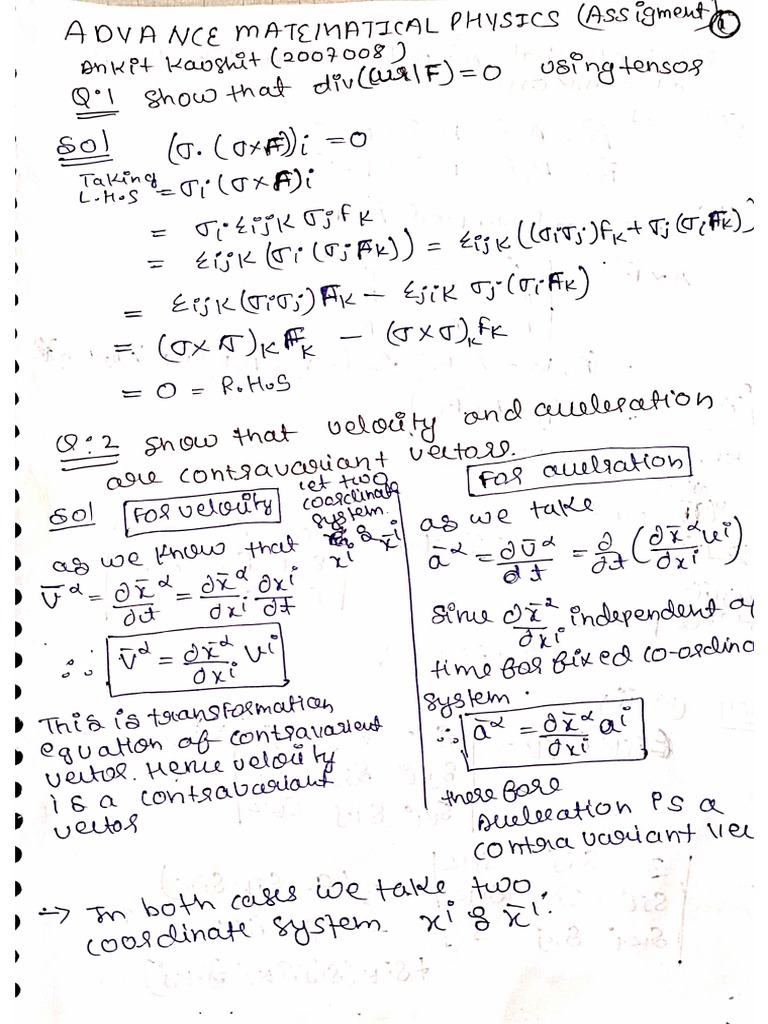 ADVANCE MATEMATICAL PHYSICS (Assigment) 1
Ankit Kaushit (2007008)
Q.1 Show that div(curl F) = 0 using tensor
Sol (σ. (σ×F))i = 0
Taking
L.H.S = σi (σ×F)i
= σi εijk σj fk
= εijk (σi (σj Fk)) = εijk ((σiσj)fk + σj (σi Fk))
= εijk (σiσj) Fk − εjik σj (σi Fk)
= (σ×σ)k Fk − (σ×σ)k fk
= 0 = R.H.S
Q.2 Show that velocity and acceleration
are contravariant vectors.
Sol For velocity
let two
coordinate
system.
xi & x̄i
as we know that
v̄^α = ∂x̄^α/∂t = ∂x̄^α/∂x^i ∂x^i/∂t
∴ v̄^α = ∂x̄^α/∂x^i v^i
This is transformation
equation of contravarient
vector. Hence velocity
is a contravariant
vector
For acelration
as we take
ā^α = ∂v̄^α/∂t = ∂/∂t (∂x̄^α/∂x^i v^i)
Since ∂x̄^2/∂x^i independent of
time for fixed co-ordina
system.
∴ ā^α = ∂x̄^α/∂x^i a^i
therefore
Acceleation is a
contra variant vec
→ In both cases we take two
coordinate system x^i & x̄^i.